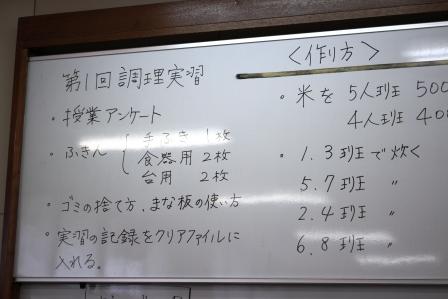 第1回調理実習
・授業アンケート
・ふきん 手ふき 1枚
食器用 2枚
台用 2枚
・ゴミの捨て方、まな板の使い方
・実習の記録をクリアファイルに
入れる。
〈作り方〉
・米を 5人班 500
4人班 400
・1.3班で炊く
5.7班 〃
2.4班 〃
6.8班 〃